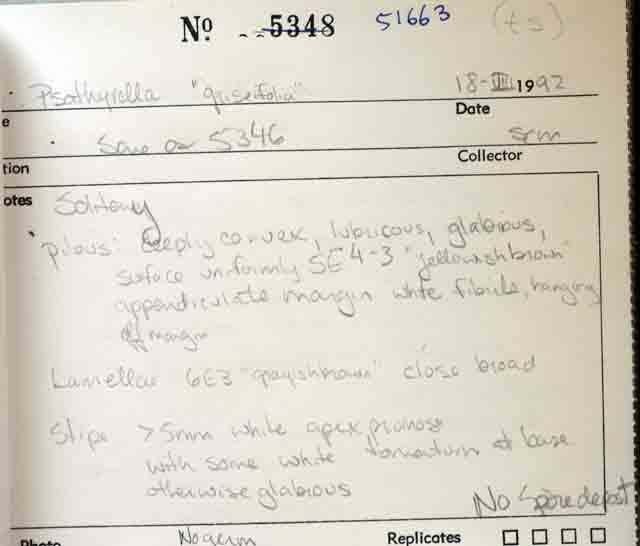 No ..5348 51663 (ts)
Psathyrella "griseifolia" 18-III 1992
e Date
Same as 5346 srm
tion Collector
otes Solitary
pileus: deeply convex, lubricous, glabrous,
surface uniformly 5E4-3 "yellowish brown"
appendiculate margin white fibrils, hanging
off margin
Lamellae 6E3 "grayish brown" close broad
Stipe >5mm white apex pruinose
with some white tomentum at base
otherwise glabrous
No Spore deposit
Photo No germ Replicates